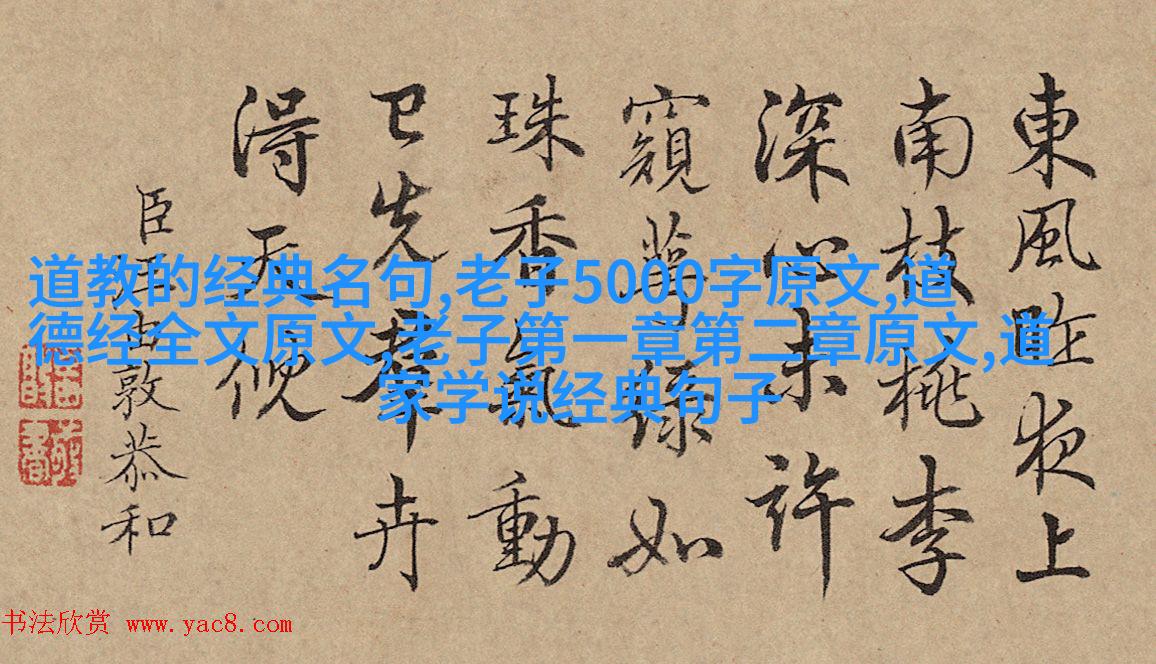 東風昨夜上
南枝桃李
深心未許
窺萼綠如
珠香氣動
已先羣卉
得天倪
臣汪由敦恭和
道教的经典名句,老子5000字原文,道
德经全文原文,老子第一章第二章原文,道
家学说经典句子
书法欣赏 www.yac8.com